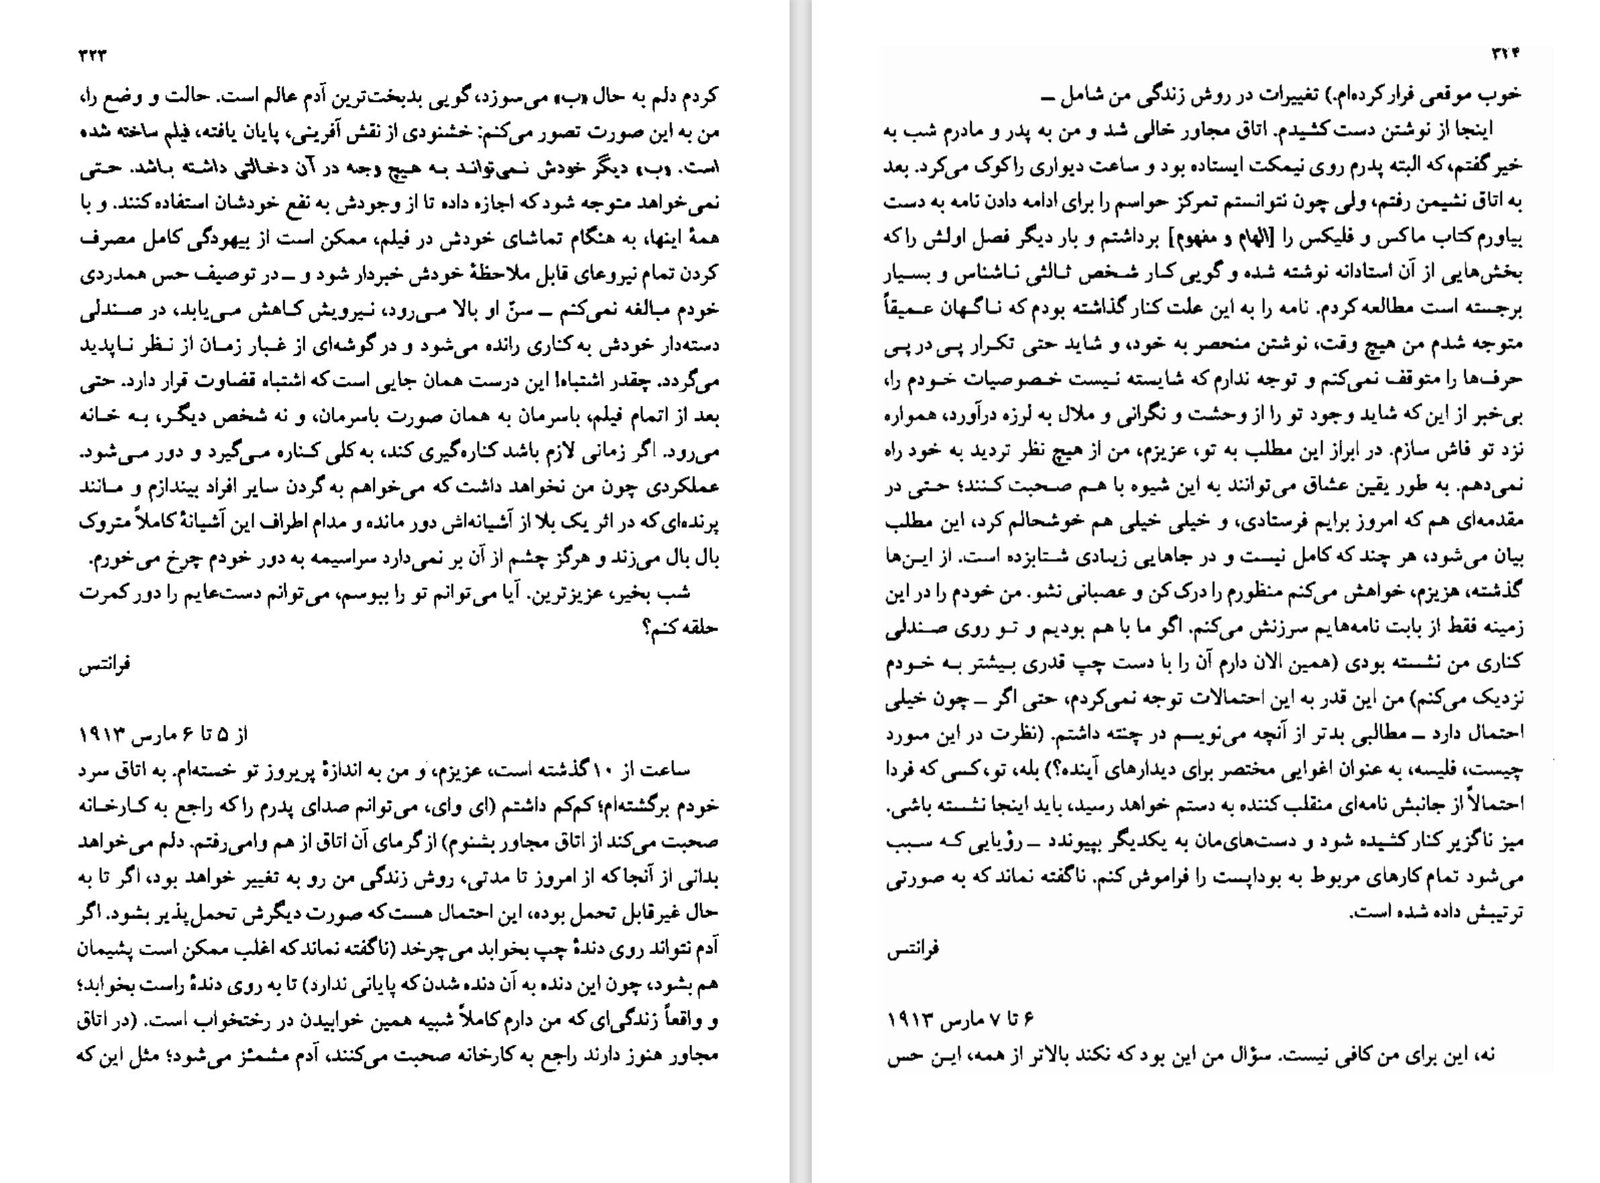 ۳۲۳
کردم دلم به حال «ب» می‌سوزد، گویی بدبخت‌ترین آدم عالم است. حالت و وضع را،
من به این صورت تصور می‌کنم: خشنودی از نقش آفرینی، پایان یافته، فیلم ساخته شده
است. «ب» دیگر خودش نمی‌تواند به هیچ وجه در آن دخالتی داشته باشد. حتی
نمی‌خواهد متوجه شود که اجازه داده تا از وجودش به نفع خودشان استفاده کنند. و با
همهٔ اینها، به هنگام تماشای خودش در فیلم، ممکن است از بیهودگی کامل مصرف
کردن تمام نیروهای قابل ملاحظهٔ خودش خبردار شود و ــ در توصیف حس همدردی
خودم مبالغه نمی‌کنم ــ سنّ او بالا می‌رود، نیرویش کاهش می‌یابد، در صندلی
دسته‌دار خودش به کناری رانده می‌شود و در گوشه‌ای از غبار زمان از نظر ناپدید
می‌گردد. چقدر اشتباه! این درست همان جایی است که اشتباه قضاوت قرار دارد. حتی
بعد از اتمام فیلم، باسرمان به همان صورت باسرمان، و نه شخص دیگر، به خانه
می‌رود. اگر زمانی لازم باشد کناره‌گیری کند، به کلی کناره می‌گیرد و دور می‌شود.
عملکردی چون من نخواهد داشت که می‌خواهم به گردن سایر افراد بیندازم و مانند
پرنده‌ای که در اثر یک بلا از آشیانه‌اش دور مانده و مدام اطراف این آشیانهٔ کاملاً متروک
بال بال می‌زند و هرگز چشم از آن بر نمی‌دارد سراسیمه به دور خودم چرخ می‌خورم.
شب بخیر، عزیزترین. آیا می‌توانم تو را ببوسم، می‌توانم دست‌هایم را دور کمرت
حلقه کنم؟
فرانتس
از ۵ تا ۶ مارس ۱۹۱۳
ساعت از ۱۰ گذشته است، عزیزم، و من به اندازهٔ پریروز تو خسته‌ام. به اتاق سرد
خودم برگشته‌ام؛ کم‌کم داشتم (ای وای، می‌توانم صدای پدرم را که راجع به کارخانه
صحبت می‌کند از اتاق مجاور بشنوم) از گرمای آن اتاق از هم وامی‌رفتم. دلم می‌خواهد
بدانی از آنجا که از امروز تا مدتی، روش زندگی من رو به تغییر خواهد بود، اگر تا به
حال غیرقابل تحمل بوده، این احتمال هست که صورت دیگرش تحمل‌پذیر بشود. اگر
آدم نتواند روی دندهٔ چپ بخوابد می‌چرخد (ناگفته نماند که اغلب ممکن است پشیمان
هم بشود، چون این دنده به آن دنده شدن که پایانی ندارد) تا به روی دندهٔ راست بخوابد؛
و واقعاً زندگی‌ای که من دارم کاملاً شبیه همین خوابیدن در رختخواب است. (در اتاق
مجاور هنوز دارند راجع به کارخانه صحبت می‌کنند، آدم مشمئز می‌شود؛ مثل این که
۳۲۴
خوب موقعی فرار کرده‌ام.) تغییرات در روش زندگی من شامل ــ
اینجا از نوشتن دست کشیدم. اتاق مجاور خالی شد و من به پدر و مادرم شب به
خیر گفتم، که البته پدرم روی نیمکت ایستاده بود و ساعت دیواری را کوک می‌کرد. بعد
به اتاق نشیمن رفتم، ولی چون نتوانستم تمرکز حواسم را برای ادامه دادن نامه به دست
بیاورم کتاب ماکس و فلیکس را [الهام و مفهوم] برداشتم و بار دیگر فصل اولش را که
بخش‌هایی از آن استادانه نوشته شده و گویی کار شخص ثالثی ناشناس و بسیار
برجسته است مطالعه کردم. نامه را به این علت کنار گذاشته بودم که ناگهان عمیقاً
متوجه شدم من هیچ وقت، نوشتن منحصر به خود، و شاید حتی تکرار پی در پی
حرف‌ها را متوقف نمی‌کنم و توجه ندارم که شایسته نیست خصوصیات خودم را،
بی‌خبر از این که شاید وجود تو را از وحشت و نگرانی و ملال به لرزه درآورد، همواره
نزد تو فاش سازم. در ابراز این مطلب به تو، عزیزم، من از هیچ نظر تردید به خود راه
نمی‌دهم. به طور یقین عشاق می‌توانند به این شیوه با هم صحبت کنند؛ حتی در
مقدمه‌ای هم که امروز برایم فرستادی، و خیلی خیلی هم خوشحالم کرد، این مطلب
بیان می‌شود، هر چند که کامل نیست و در جاهایی زیادی شتابزده است. از این‌ها
گذشته، هزیزم، خواهش می‌کنم منظورم را درک کن و عصبانی نشو. من خودم را در این
زمینه فقط از بابت نامه‌هایم سرزنش می‌کنم. اگو ما با هم بودیم و تو روی صندلی
کناری من نشسته بودی (همین الان دارم آن را با دست چپ قدری بیشتر به خودم
نزدیک می‌کنم) من این قدر به این احتمالات توجه نمی‌کردم، حتی اگر ــ چون خیلی
احتمال دارد ــ مطالبی بدتر از آنچه می‌نویسم در چنته داشتم. (نظرت در این مورد
چیست، فلیسه، به عنوان اغوایی مختصر برای دیدارهای آینده؟) بله، تو، کسی که فردا
احتمالاً از جانبش نامه‌ای منقلب کننده به دستم خواهد رسید، باید اینجا نشسته باشی.
میز ناگزیر کنار کشیده شود و دست‌های‌مان به یکدیگر بپیوندد ــ رؤیایی که سبب
می‌شود تمام کارهای مربوط به بوداپست را فراموش کنم. ناگفته نماند که به صورتی
ترتیبش داده شده است.
فرانتس
۶ تا ۷ مارس ۱۹۱۳
نه، این برای من کافی نیست. سؤال من این بود که نکند بالاتر از همه، این حس